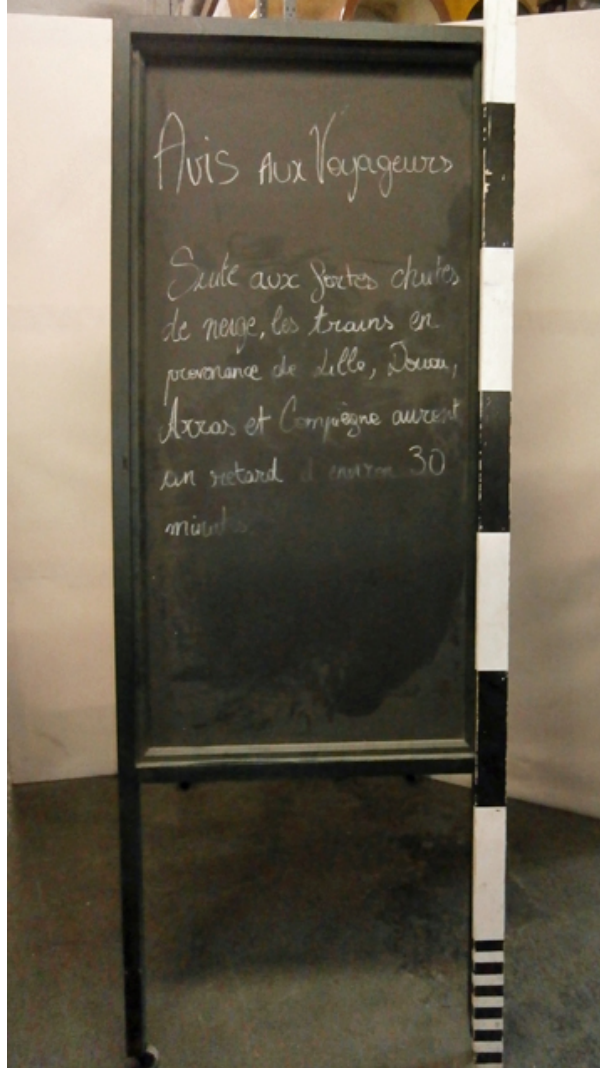 Avis Aux Voyageurs
Suite aux fortes chutes
de neige, les trains en
provenance de Lille, Douai,
Arras et Compiègne auront
un retard d'environ 30
minutes